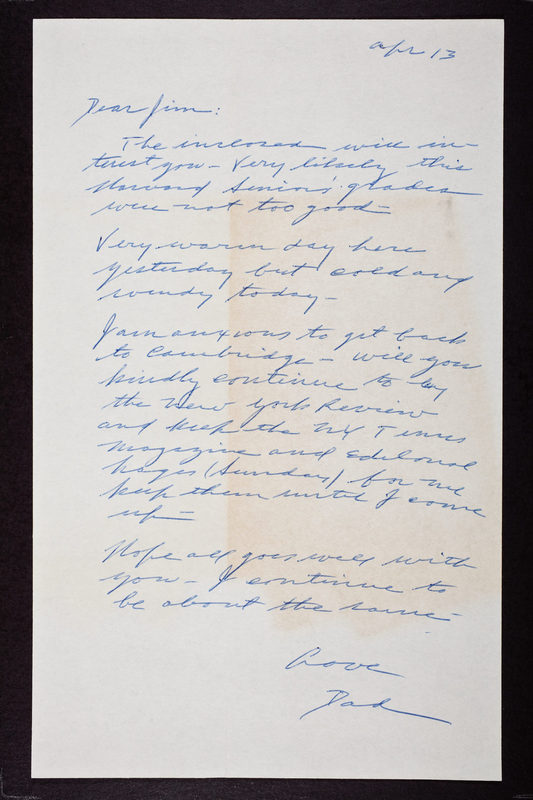 Apr 13
Dear Jim:
The inclosed will in-
terest you - Very likely this
Harvard Senior's grades
were not too good -
Very warm day here
yesterday but cold and
windy today -
I am anxious to get back
to Cambridge - will you
kindly continue to buy
the New York Review
and keep the NY Times
magazine and Editorial
pages (Sunday) for me
keep them until I come
up -
Hope all goes well with
you - I continue to
be about the same -
Love
Dad